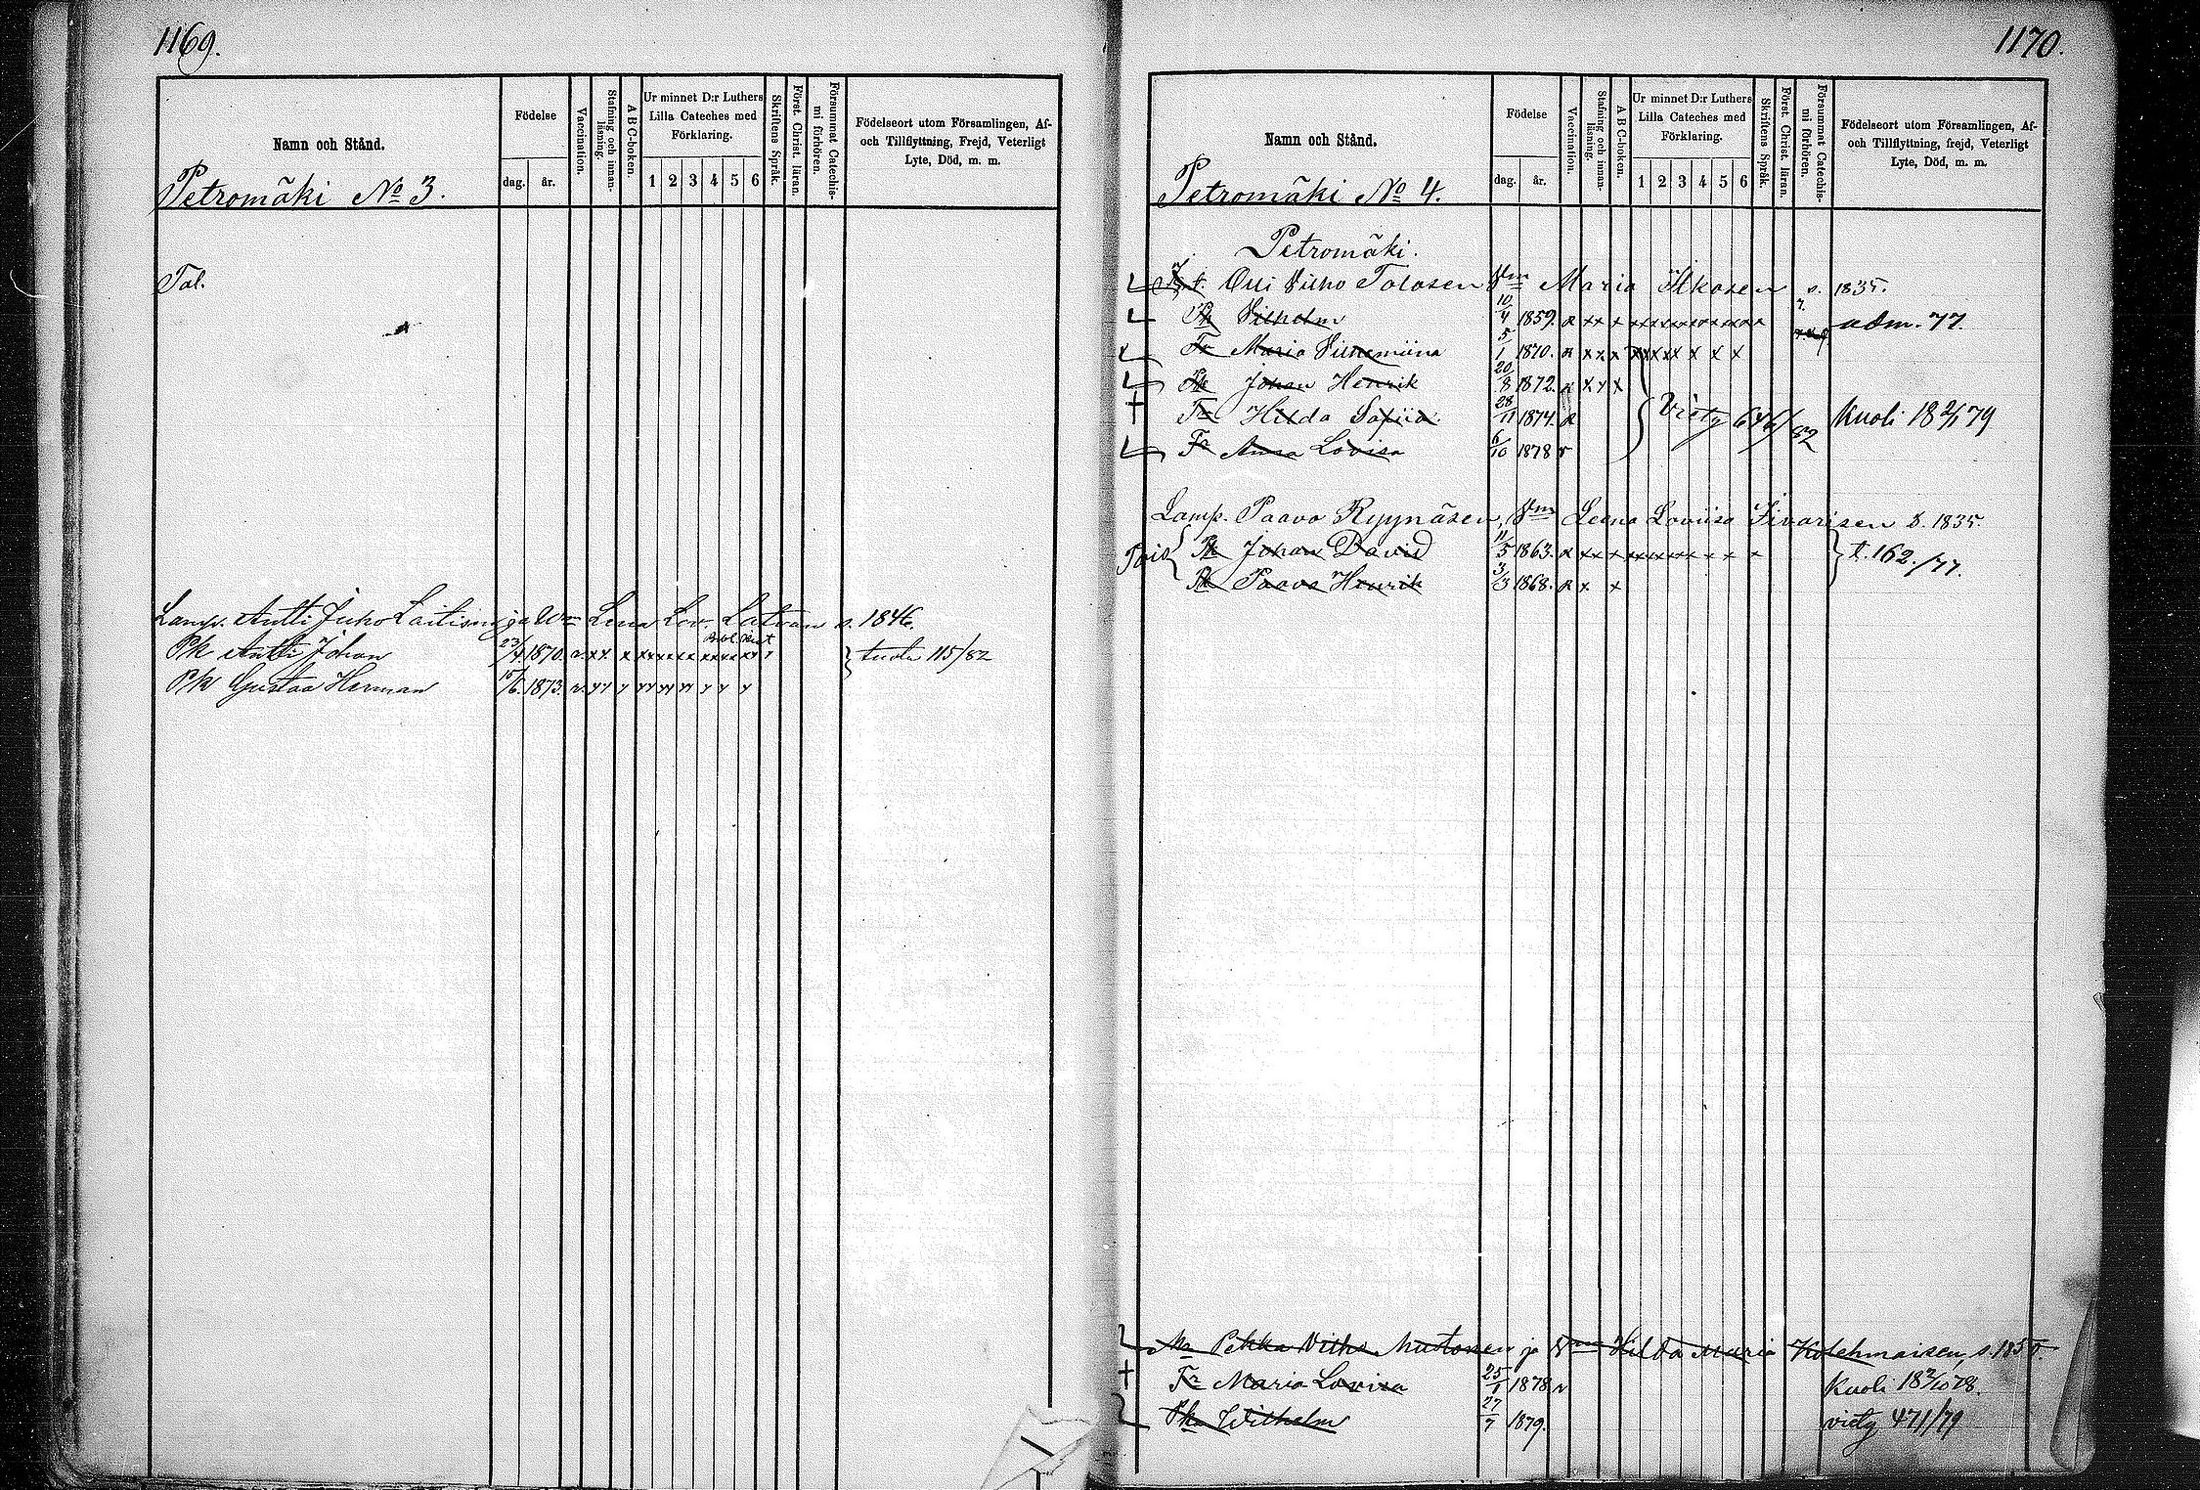 1169.
Namn och Stånd.
Födelse
dag. år.
Vaccination.
Stafning och innanläsning.
A B C-boken.
Ur minnet D:r Luthers Lilla Cateches med Förklaring.
1 2 3 4 5 6
Skriftens Språk.
Först. Christ. läran.
Försummat Catechismi förhören.
Födelseort utom Församlingen, Af- och Tillflyttning, Frejd, Veterligt Lyte, Död, m. m.
Petromäki No 3.
Tal.
Lamp. Antti Juho Laitisen ja Wm Lena Lov. Latvan s. 1846.
Pk Antti Johan 23/4 1870. tuotu 115/82
Pk Gustaa Herman 15/6 1873.
1170.
Namn och Stånd.
Födelse
dag. år.
Vaccination.
Stafning och innanläsning.
A B C-boken.
Ur minnet D:r Luthers Lilla Cateches med Förklaring.
1 2 3 4 5 6
Skriftens Språk.
Först. Christ. läran.
Försummat Catechismi förhören.
Födelseort utom Församlingen, Af- och Tillflyttning, frejd, Veterligt Lyte, Död, m. m.
Petromäki No 4.
Petromäki.
Olli Vilho Tolosen Vm Maria Ikosen s. 1835.
Pk Vilhelm 10/4 1859. adm. 77.
Tr Maria Vilhemiina 5/1 1870.
Pk Johan Henrik 20/8 1872.
Tr Hilda Sofiia 28/11 1874. Viety 646/82 Kuoli 18 2/1 79
Tr Anna Lovisa 6/10 1878
Lamp. Paavo Ryynäsen, Vm Leena Loviisa Iivarisen s. 1835.
Pois Pk Johan David 11/5 1863. t. 162./77.
Pk Paavo Henrik 3/3 1868.
Pekka Vilho Mustosen ja Vm Hilda Maria Kolehmaisen, s. 1850.
Tr Maria Lovisa 25/1 1878 Kuoli 18 2/10 78.
Pk Wilhelm 27/7 1879. viety 471/79